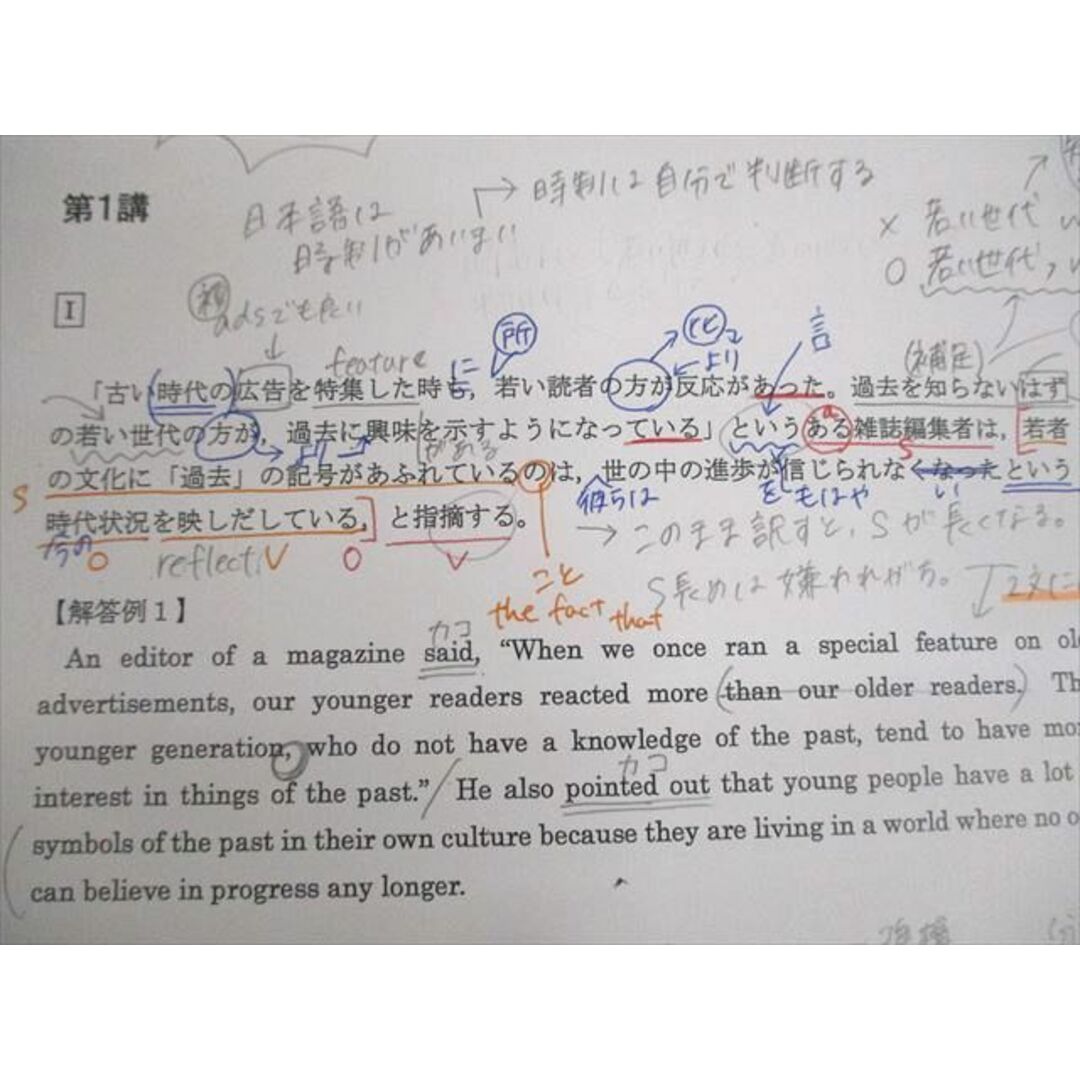 第1講
日本語は
時制があいまい
→ 時制は自分で判断する
× 若い世代
○ 若い世代,
I
adsでも良い
feature
に
所
比
より
言
(補足)
「古い時代の広告を特集した時も，若い読者の方が反応があった。過去を知らないはず
の若い世代の方が，過去に興味を示すようになっている」というある雑誌編集者は，若者
がある
a
S
の文化に「過去」の記号があふれているのは，世の中の進歩が信じられなくなったという
S
彼らは
を
もはや
い
時代状況を映しだしている，と指摘する。
O
reflect V
O
V
→ このまま訳すと、Sが長くなる。
S長めは嫌われがち。
2文に
こと
the fact that
【解答例1】
カコ
An editor of a magazine said, “When we once ran a special feature on
advertisements, our younger readers reacted more (than our older readers.)
younger generation, who do not have a knowledge of the past, tend to have
カコ
interest in things of the past.” / He also pointed out that young people have a lot
symbols of the past in their own culture because they are living in a world where no
can believe in progress any longer.